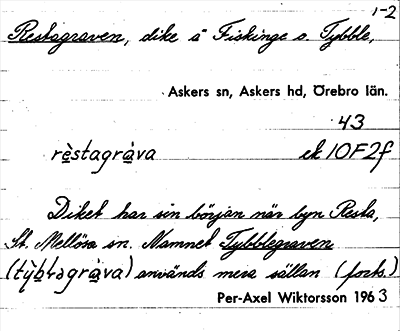 1-2
Restagraven, dike å Fiskinge o. Tybble,
Askers sn, Askers hd, Örebro län.
43
rèstagràva ek 10F2f
Diket har sin början när byn Resta,
St. Mellösa sn. Namnet Tybblegraven
(tỳbḷagràva) används mera sällan (forts.)
Per-Axel Wiktorsson 1963